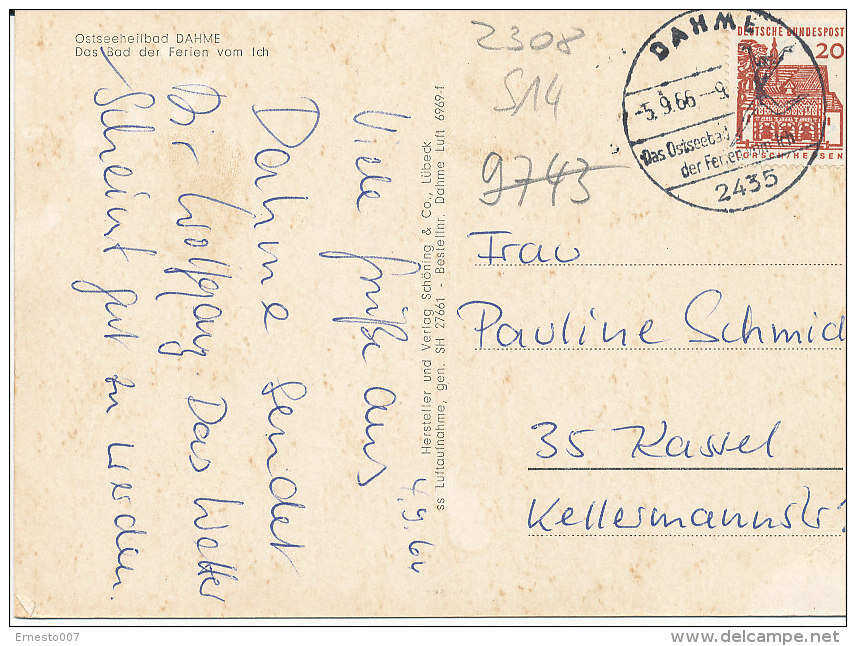 Ostseeheilbad DAHME
Das Bad der Ferien vom Ich
4.9.66
Viele Grüße aus
Dahme sendet
Dir Wolfgang Das Wetter
Scheint gut zu werden.
Hersteller und Verlag Schöning & Co., Lübeck
ss Luftaufnahme, gen. SH 27661 - Bestellnr. Dahme Luft 6969-f
2308
S14
9743
DAHME
-5.9.66-9
Das Ostseebad
der Ferien vom Ich
2435
DEUTSCHE BUNDESPOST
20
LORSCH/HESSEN
Frau
Pauline Schmid
35 Kassel
Kellermannstr
Ernesto007
delcampe.net